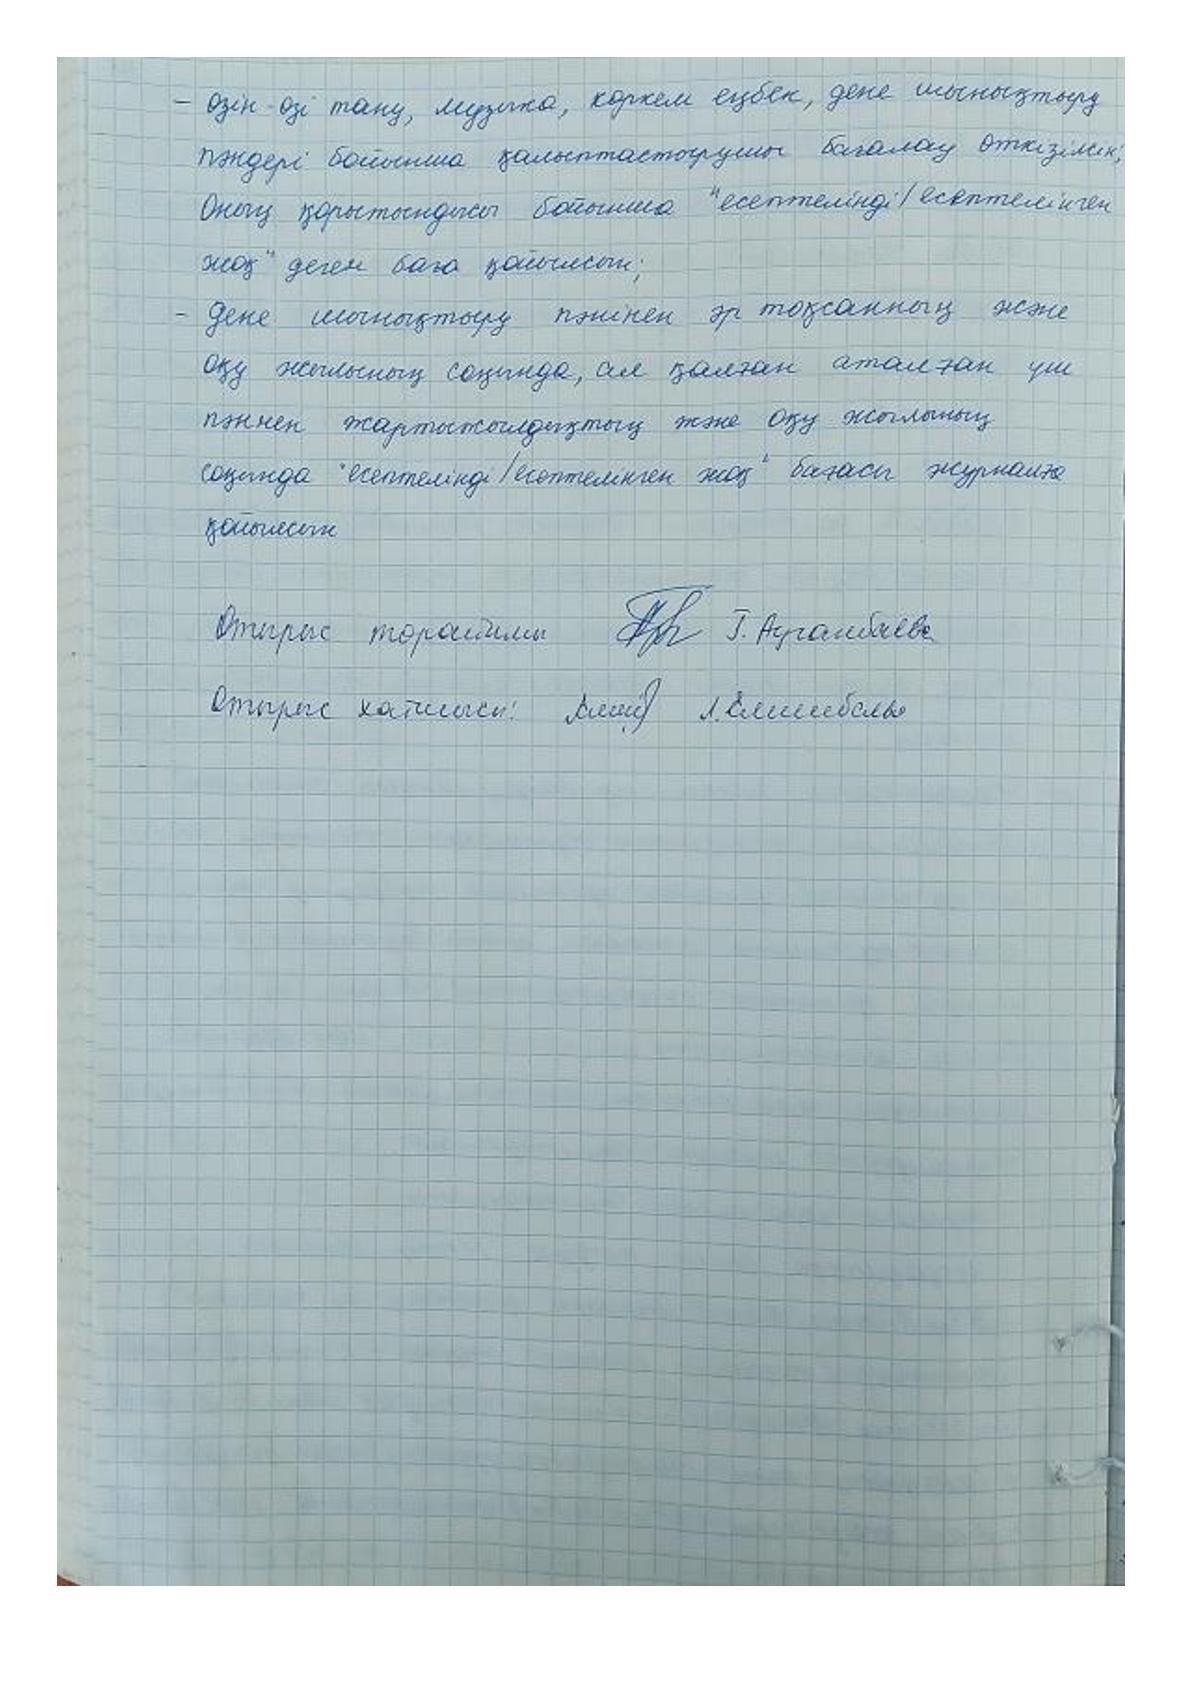 – өзін-өзі тану, музыка, көркем еңбек, дене шынықтыру
пәндері бойынша қалыптастырушы бағалау өткізілсін;
Оның қорытындысы бойынша "есептелінді/есептелінген
жоқ" деген баға қойылсын;
- Дене шынықтыру пәнінен әр тоқсанның және
оқу жылының соңында, ал қалған аталған үш
пәннен жартыжылдықтың және оқу жылының
соңында "есептелінді/есептелінген жоқ" бағасы журналға
қойылсын
Отырыс төрайымы Г. Ауганбаева
Отырыс хатшысы: Л.